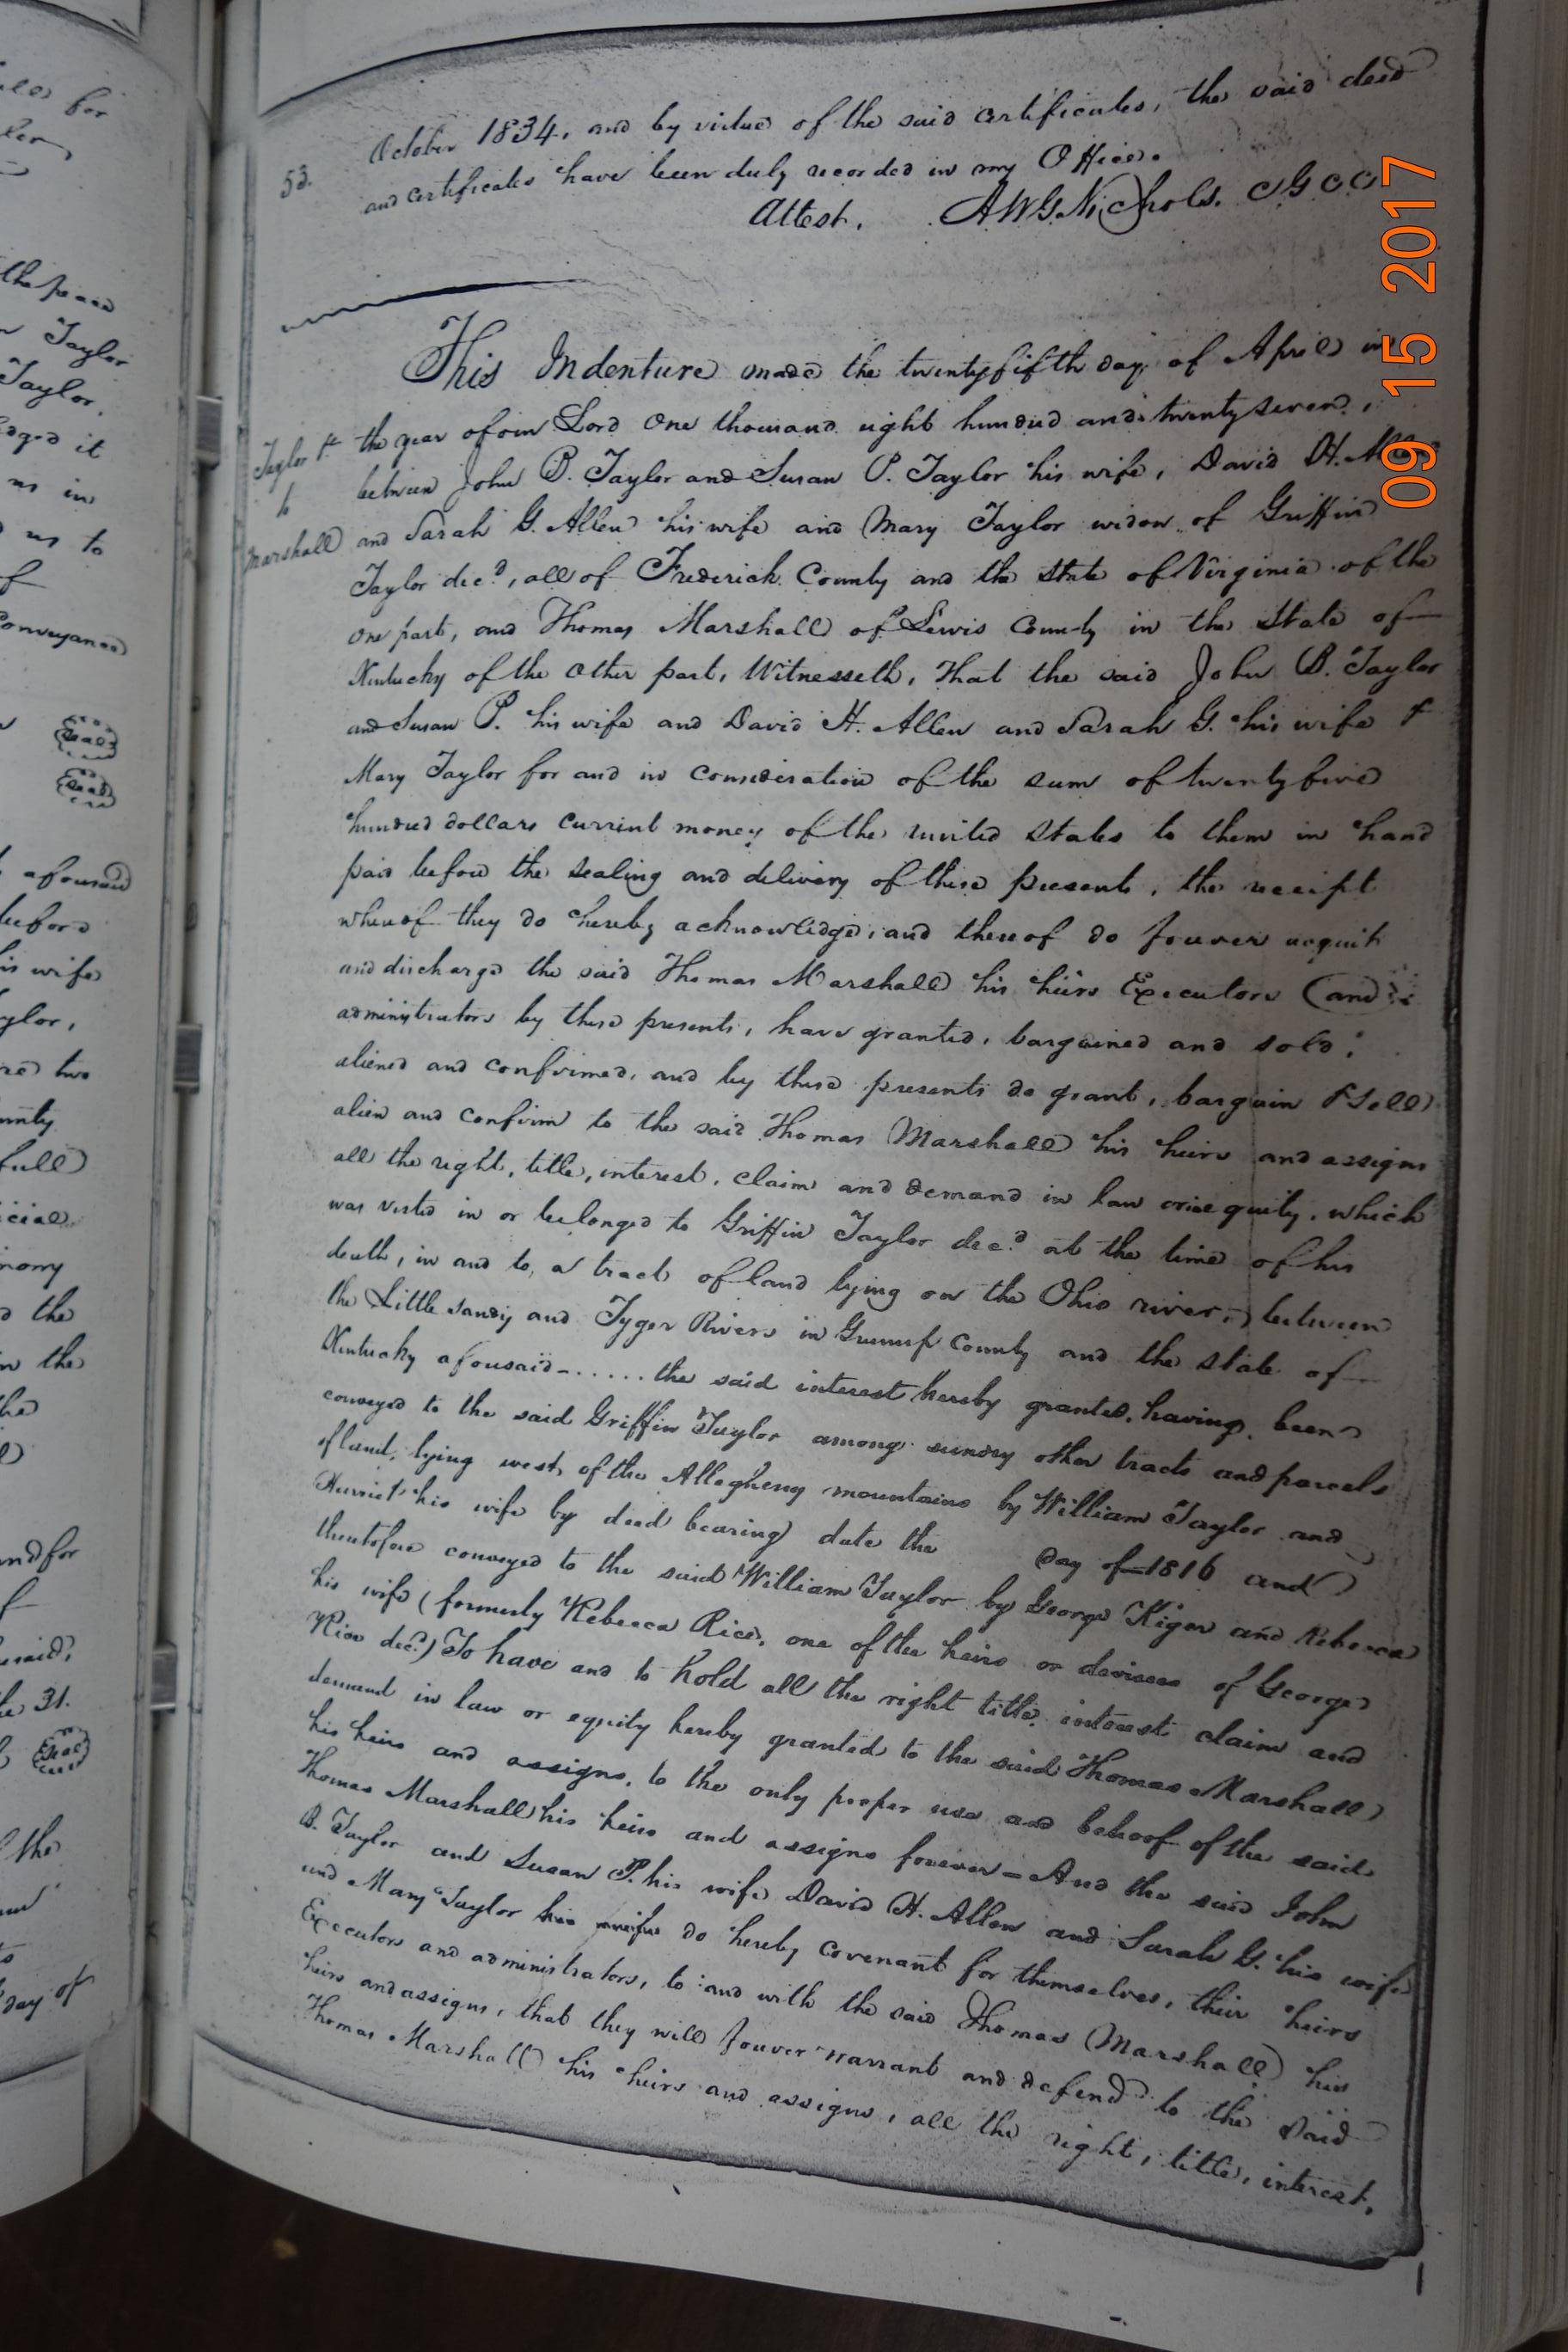 lles for
ler
the peace
Taylor
Taylor.
edged it
us in
us to
of
Conveyance
Seal
Seal
aforesaid
before
his wife
ylor,
red two
unty
full
icial
mony
d the
in the
the
and for
f
said,
the 31.
Seal
f the
day of
53.
October 1834, and by virtue of the said Certificates, the said deed
and certificates have been duly recorded in my Office.
Attest. AWG Nichols. C G C C
09 15 2017
This Indenture made the twentyfifth day of April in
Taylor &c
to
Marshall
the year of our Lord One thousand eight hundred and twenty seven,
between John B. Taylor and Susan P. Taylor his wife, David H. Allen
and Sarah G. Allen his wife and Mary Taylor widow of Griffin
Taylor decd, all of Frederick County and the State of Virginia of the
one part, and Thomas Marshall of Lewis County in the State of
Kentucky of the other part, Witnesseth, That the said John B. Taylor
and Susan P. his wife and David H. Allen and Sarah G. his wife &
Mary Taylor for and in consideration of the sum of twenty five
hundred dollars current money of the united States to them in hand
paid before the sealing and delivery of these presents, the receipt
whereof they do hereby acknowledge, and thereof do forever acquit
and discharge the said Thomas Marshall his heirs Executors (and
administrators by these presents, have granted, bargained and sold,
aliened and confirmed, and by these presents do grant, bargain & sell
alien and confirm to the said Thomas Marshall his heirs and assigns
all the right, title, interest, claim and demand in law or in equity, which
was vested in or belonged to Griffin Taylor decd at the time of his
death, in and to, a tract of land lying on the Ohio river, between
the Little Sandy and Tyger Rivers in Greenup County and the state of
Kentucky aforesaid ...... the said interest hereby granted, having been
conveyed to the said Griffin Taylor among sundry other tracts and parcels
of land, lying west of the Allegheny mountains by William Taylor and
Harriet his wife by deed bearing date the day of 1816 and
theretofore conveyed to the said William Taylor by George Kiger and Rebecca
his wife (formerly Rebecca Rice, one of the heirs or devisees of George
Rice decd) To have and to hold all the right title, interest claim and
demand in law or equity hereby granted to the said Thomas Marshall
his heirs and assigns, to the only proper use and behoof of the said
Thomas Marshall his heirs and assigns forever - And the said John
B. Taylor and Susan P. his wife David H. Allen and Sarah G. his wife
and Mary Taylor his wife do hereby covenant for themselves, their heirs
Executors and administrators, to and with the said Thomas Marshall his
heirs and assigns, that they will forever warrant and defend to the said
Thomas Marshall his heirs and assigns, all the right, title, interest,